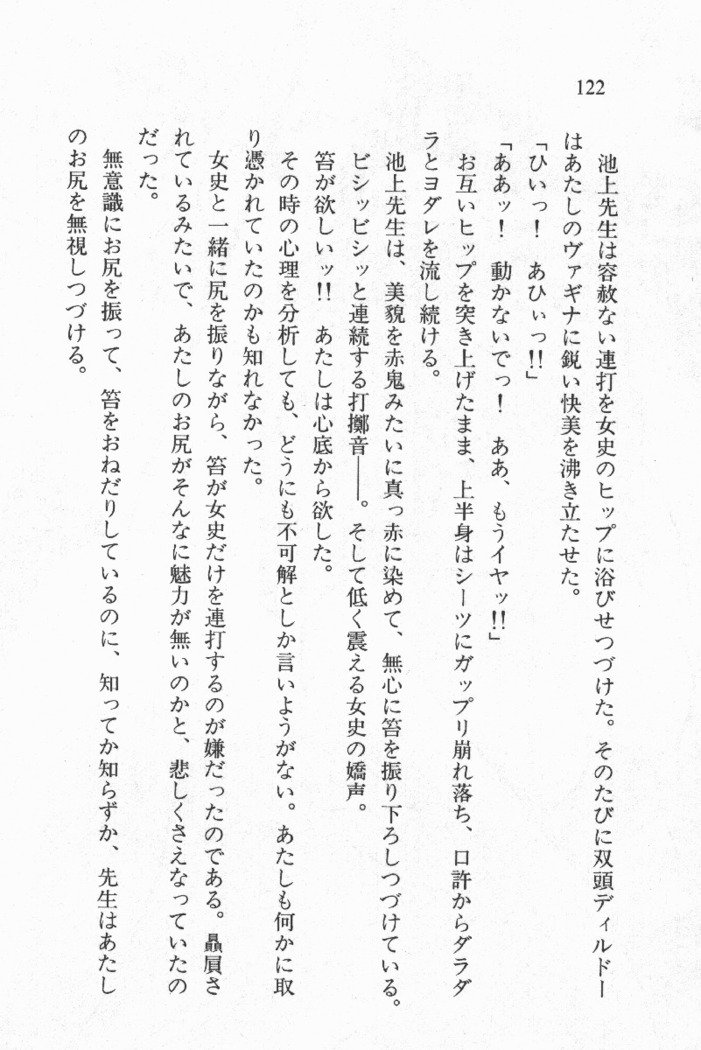 122
池上先生は容赦ない連打を女史のヒップに浴びせつづけた。そのたびに双頭ディルドー
はあたしのヴァギナに鋭い快美を沸き立たせた。
「ひいっ！　あひぃっ!!」
「ああッ！　動かないでっ！　ああ、もうイヤッ!!」
お互いヒップを突き上げたまま、上半身はシーツにガップリ崩れ落ち、口許からダラダ
ラとヨダレを流し続ける。
池上先生は、美貌を赤鬼みたいに真っ赤に染めて、無心に笞を振り下ろしつづけている。
ビシッビシッと連続する打擲音――。そして低く震える女史の嬌声。
笞が欲しいッ!!　あたしは心底から欲した。
その時の心理を分析しても、どうにも不可解としか言いようがない。あたしも何かに取
り憑かれていたのかも知れなかった。
女史と一緒に尻を振りながら、笞が女史だけを連打するのが嫌だったのである。贔屓さ
れているみたいで、あたしのお尻がそんなに魅力が無いのかと、悲しくさえなっていたの
だった。
無意識にお尻を振って、笞をおねだりしているのに、知ってか知らずか、先生はあたし
のお尻を無視しつづける。